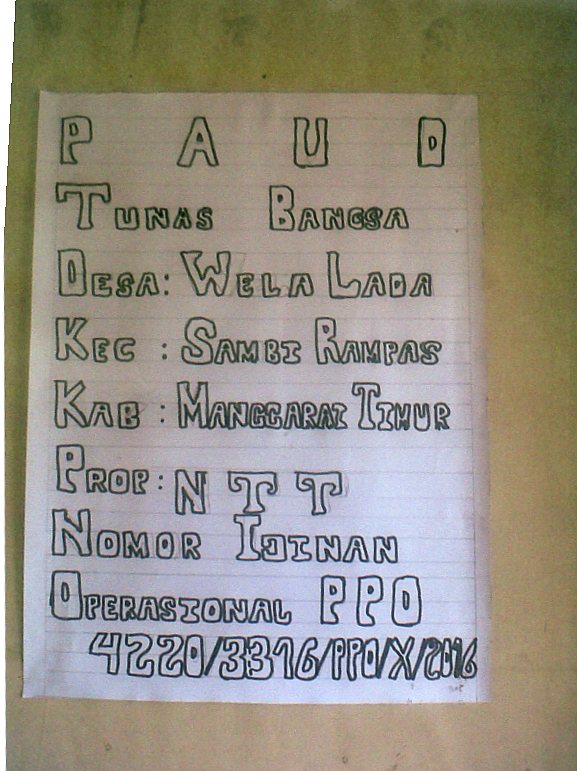 P A U D
TUNAS BANGSA
DESA: WELA LADA
KEC : SAMBI RAMPAS
KAB : MANGGARAI TIMUR
PROP: N T T
NOMOR IJINAN
OPERASIONAL PPO
4220/3316/PPO/X/2016